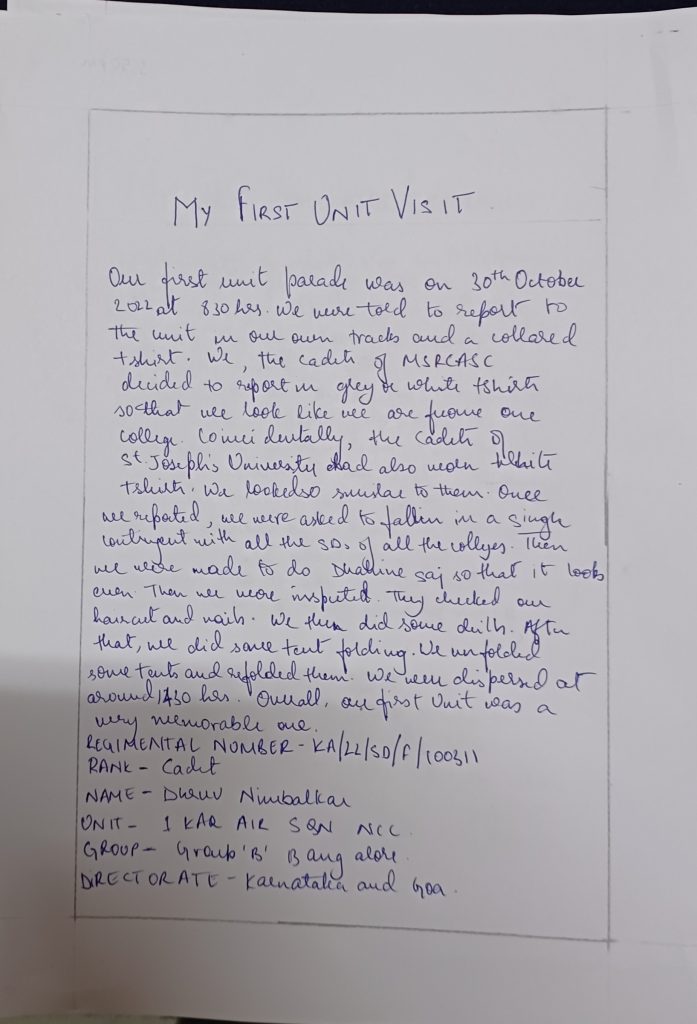 MY FIRST UNIT VISIT
Our first unit parade was on 30th October
2022 at 830 hrs. We were told to report to
the unit in our own tracks and a collared
tshirt. We, the cadets of MSRCASC
decided to report in grey or white tshirts
so that we look like we are from one
college. Coincidentally, the cadets of
St. Joseph's University had also worn white
tshirts. We looked so similar to them. Once
we reported, we were asked to fallin in a single
contingent with all the SDs of all the colleges. Then
we were made to do Dhahine saj so that it looks
even. Then we were inspected. They checked our
haircut and nails. We then did some drills. After
that, we did some tent folding. We unfolded
some tents and refolded them. We were dispersed at
around 1430 hrs. Overall, our first Unit was a
very memorable one.
REGIMENTAL NUMBER - KA/22/SD/F/100311
RANK - Cadet
NAME - Dhruv Nimbalkar
UNIT - 1 KAR AIR SQN NCC.
GROUP - Group 'B' Bangalore.
DIRECTORATE - Karnataka and Goa.